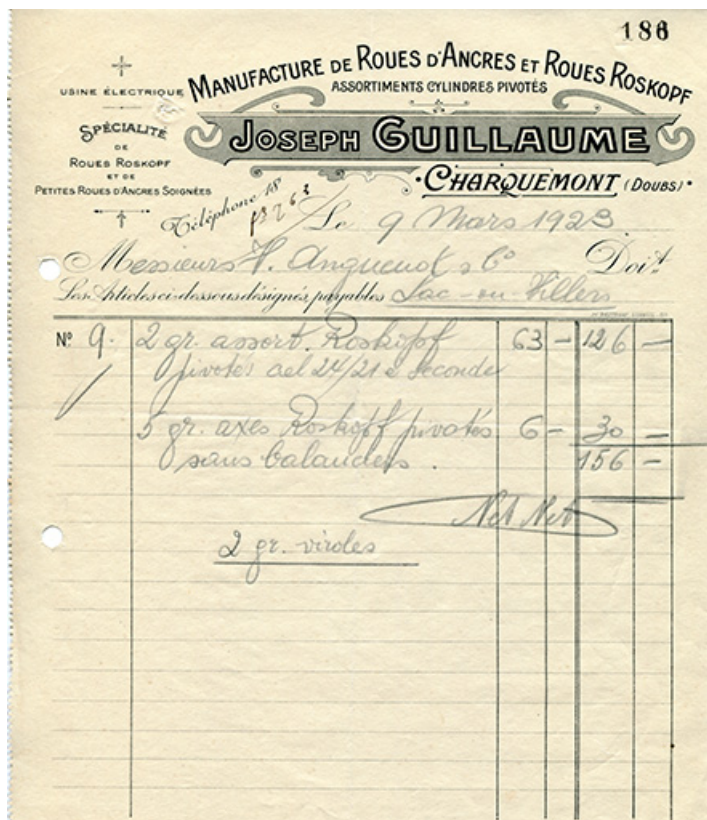 186
USINE ÉLECTRIQUE
SPÉCIALITÉ
DE
ROUES ROSKOPF
ET DE
PETITES ROUES D'ANCRES SOIGNÉES
MANUFACTURE DE ROUES D'ANCRES ET ROUES ROSKOPF
ASSORTIMENTS CYLINDRES PIVOTÉS
JOSEPH GUILLAUME
CHARQUEMONT (DOUBS)
Téléphone 18
Le 9 Mars 1923
Messieurs & Co Doit
Les Articles ci-dessous désignés, payables Lac-ou-Villers
No 9. 2 gr. assort. Roskopf 63 - 126 -
pivotés 24/21 Seconde
5 gr. axes Roskopf pivotés 6 - 30 -
sans balanciers. 156 -
Net Net
2 gr. viroles